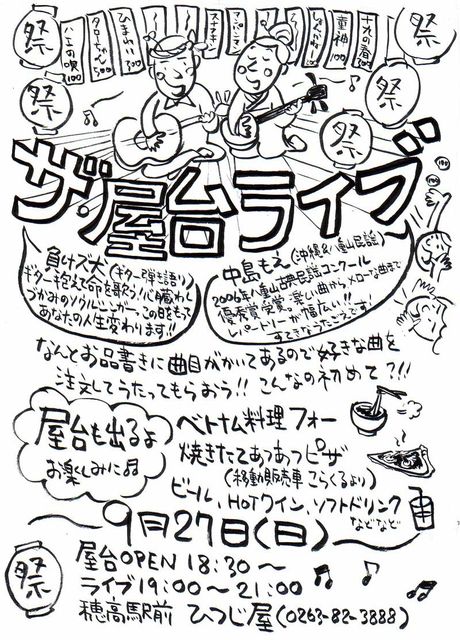 祭
祭
祭
祭
祭
十九の春
童神
ひまわり
300
500
100
ザ・屋台ライブ
負けズ大(ギター弾き語り)
ギター抱えて命を歌う!心臓わし
づかみのソウルシンガー。この日をもって
あなたの人生変わります!!
中島もえ(沖縄&八重山民謡)
2006年八重山古典民謡コンクール
優秀賞受賞。楽しい曲からメローな曲まで
レパートリーが幅広い!!
すてきなうたごえです!
なんとお品書きに曲目がかいてあるので好きな曲を
注文してうたってもらおう!!こんなの初めて?!!
屋台も出るよ
お楽しみに♫
ベトナム料理フォー
焼きたてあつあつピザ
(移動販売車 こらくるより)
ビール、HOTワイン、ソフトドリンク
などなど
9月27日(日)
祭
屋台OPEN 18:30〜
ライブ19:00〜21:00
穂高駅前 ひつじ屋(0263-82-3888)